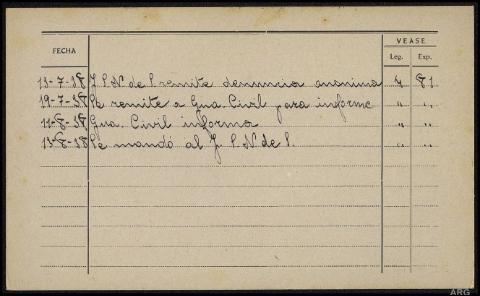 VEASE
FECHA Leg. Exp.
13-7-38 J. S. N. de S. remite denuncia anonima 4 81
19-7-38 Se remite a Gua. Civil para informe " "
11-8-38 Gua. Civil informa " "
13-8-38 Se mandó al J. S. N. de S. " "
ARG